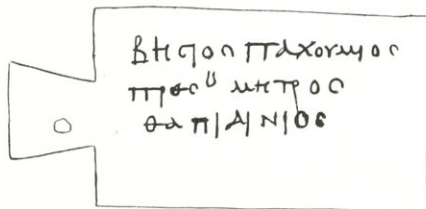 βηϲοϲ παχουμιοϲ
πρεϲᵘ μητροϲ
θαπ|α|ν|οϲ